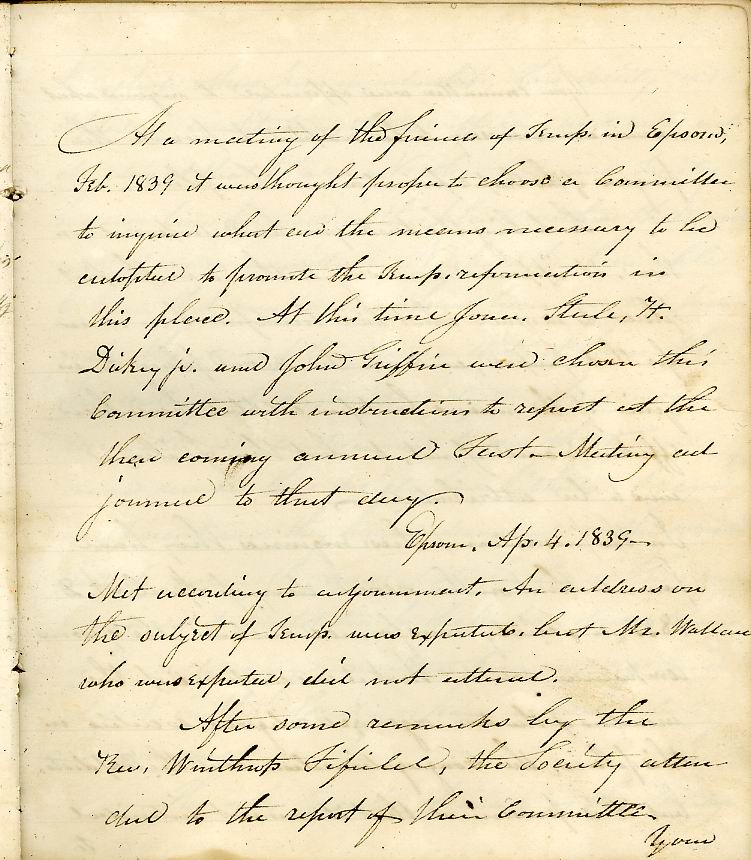 At a meeting of the friends of Temp. in Epsom,
Feb. 1839 it was thought proper to choose a Committee
to inquire what are the means necessary to be
adopted to promote the Temp. reformation in
this place. At this time Jona. Steele, H.
Dickey jr. and John Griffin were chosen this
Committee with instructions to report at the
then coming annual Fast - Meeting ad
journed to that day.
Epsom, Ap. 4. 1839
Met according to adjournment. An address on
the subject of Temp. was expected, but Mr. Wallace
who was expected, did not attend.
After some remarks by the
Rev. Winthrop Fifield, the Society atten
ded to the report of their Committee.
Your